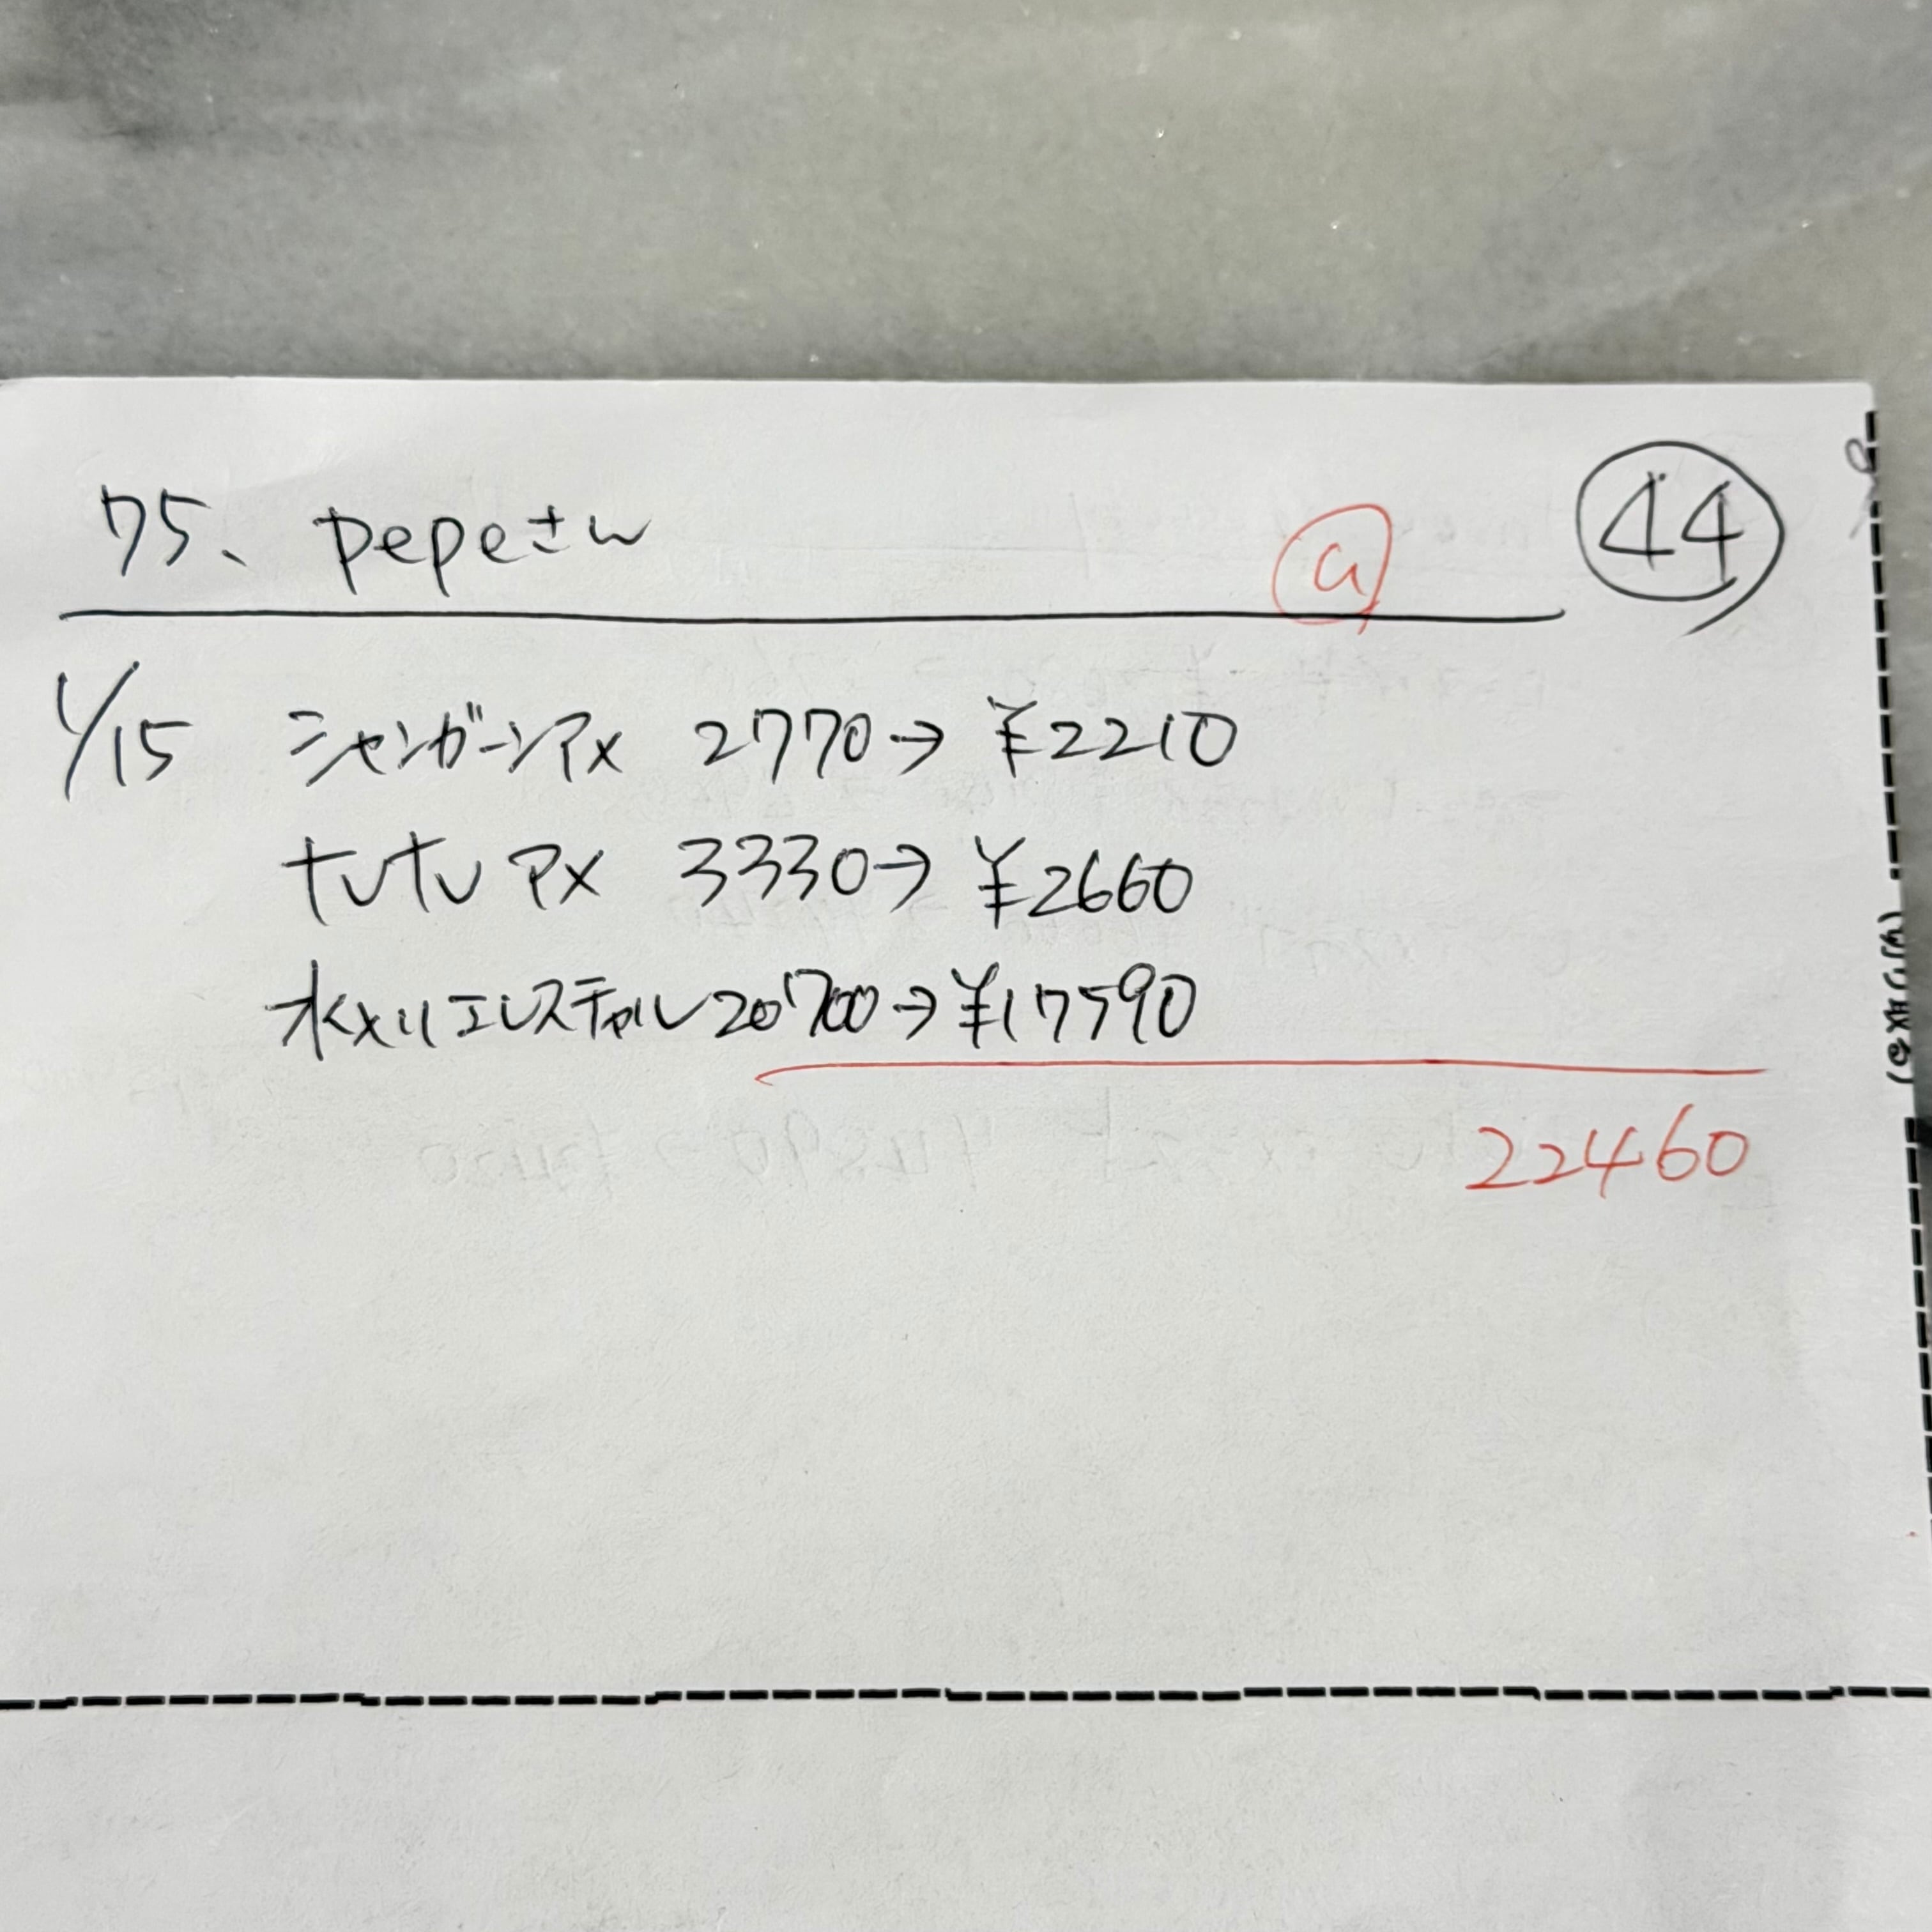 75、pepeさん ⓐ ㊹
1/15 シャンガーンアメ 2770→ ¥2210
ナレナレ アメ 3330→ ¥2660
水入りエレスチャル 20700→¥17590
22460